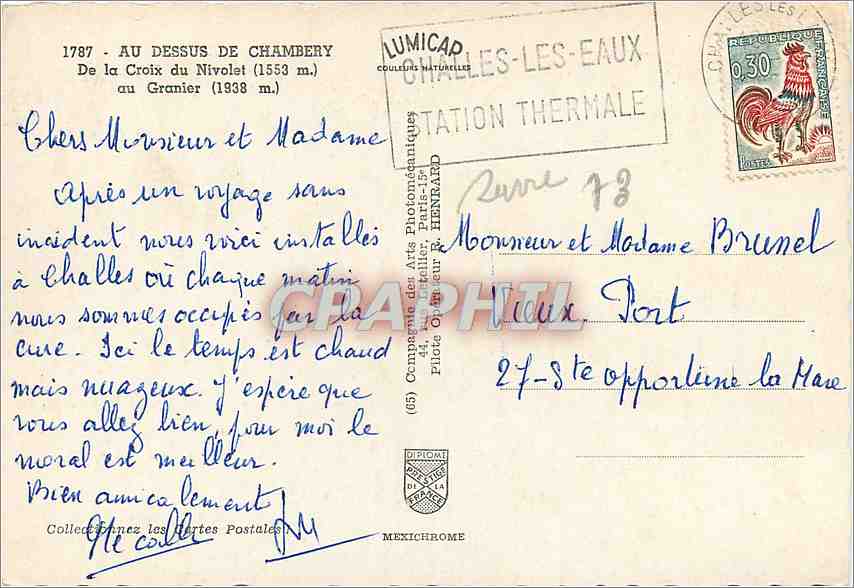 1787 - AU DESSUS DE CHAMBERY
De la Croix du Nivolet (1553 m.)
au Granier (1938 m.)
LUMICAP
COULEURS NATURELLES
CHALLES-LES-EAUX
STATION THERMALE
CHALLES LES
REPUBLIQUE
FRANÇAISE
0,30
POSTES
Chers Monsieur et Madame
Après un voyage sans
incident nous voici installés
à Challes où chaque matin
nous sommes occupés par la
cure. Ici le temps est chaud
mais nuageux. J'espère que
vous allez bien, pour moi le
moral est meilleur.
Bien amicalement
Collectionnez les Cartes Postales
(65) Compagnie des Arts Photomécaniques
44, rue Letellier, Paris-15e
Pilote Opérateur R. HENRARD
CPAPHIL
73
Monsieur et Madame Brunel
Vieux. Port
27-Ste opportune la Mare
DIPLOME
PRESTIGE
DE LA
FRANCE
MEXICHROME